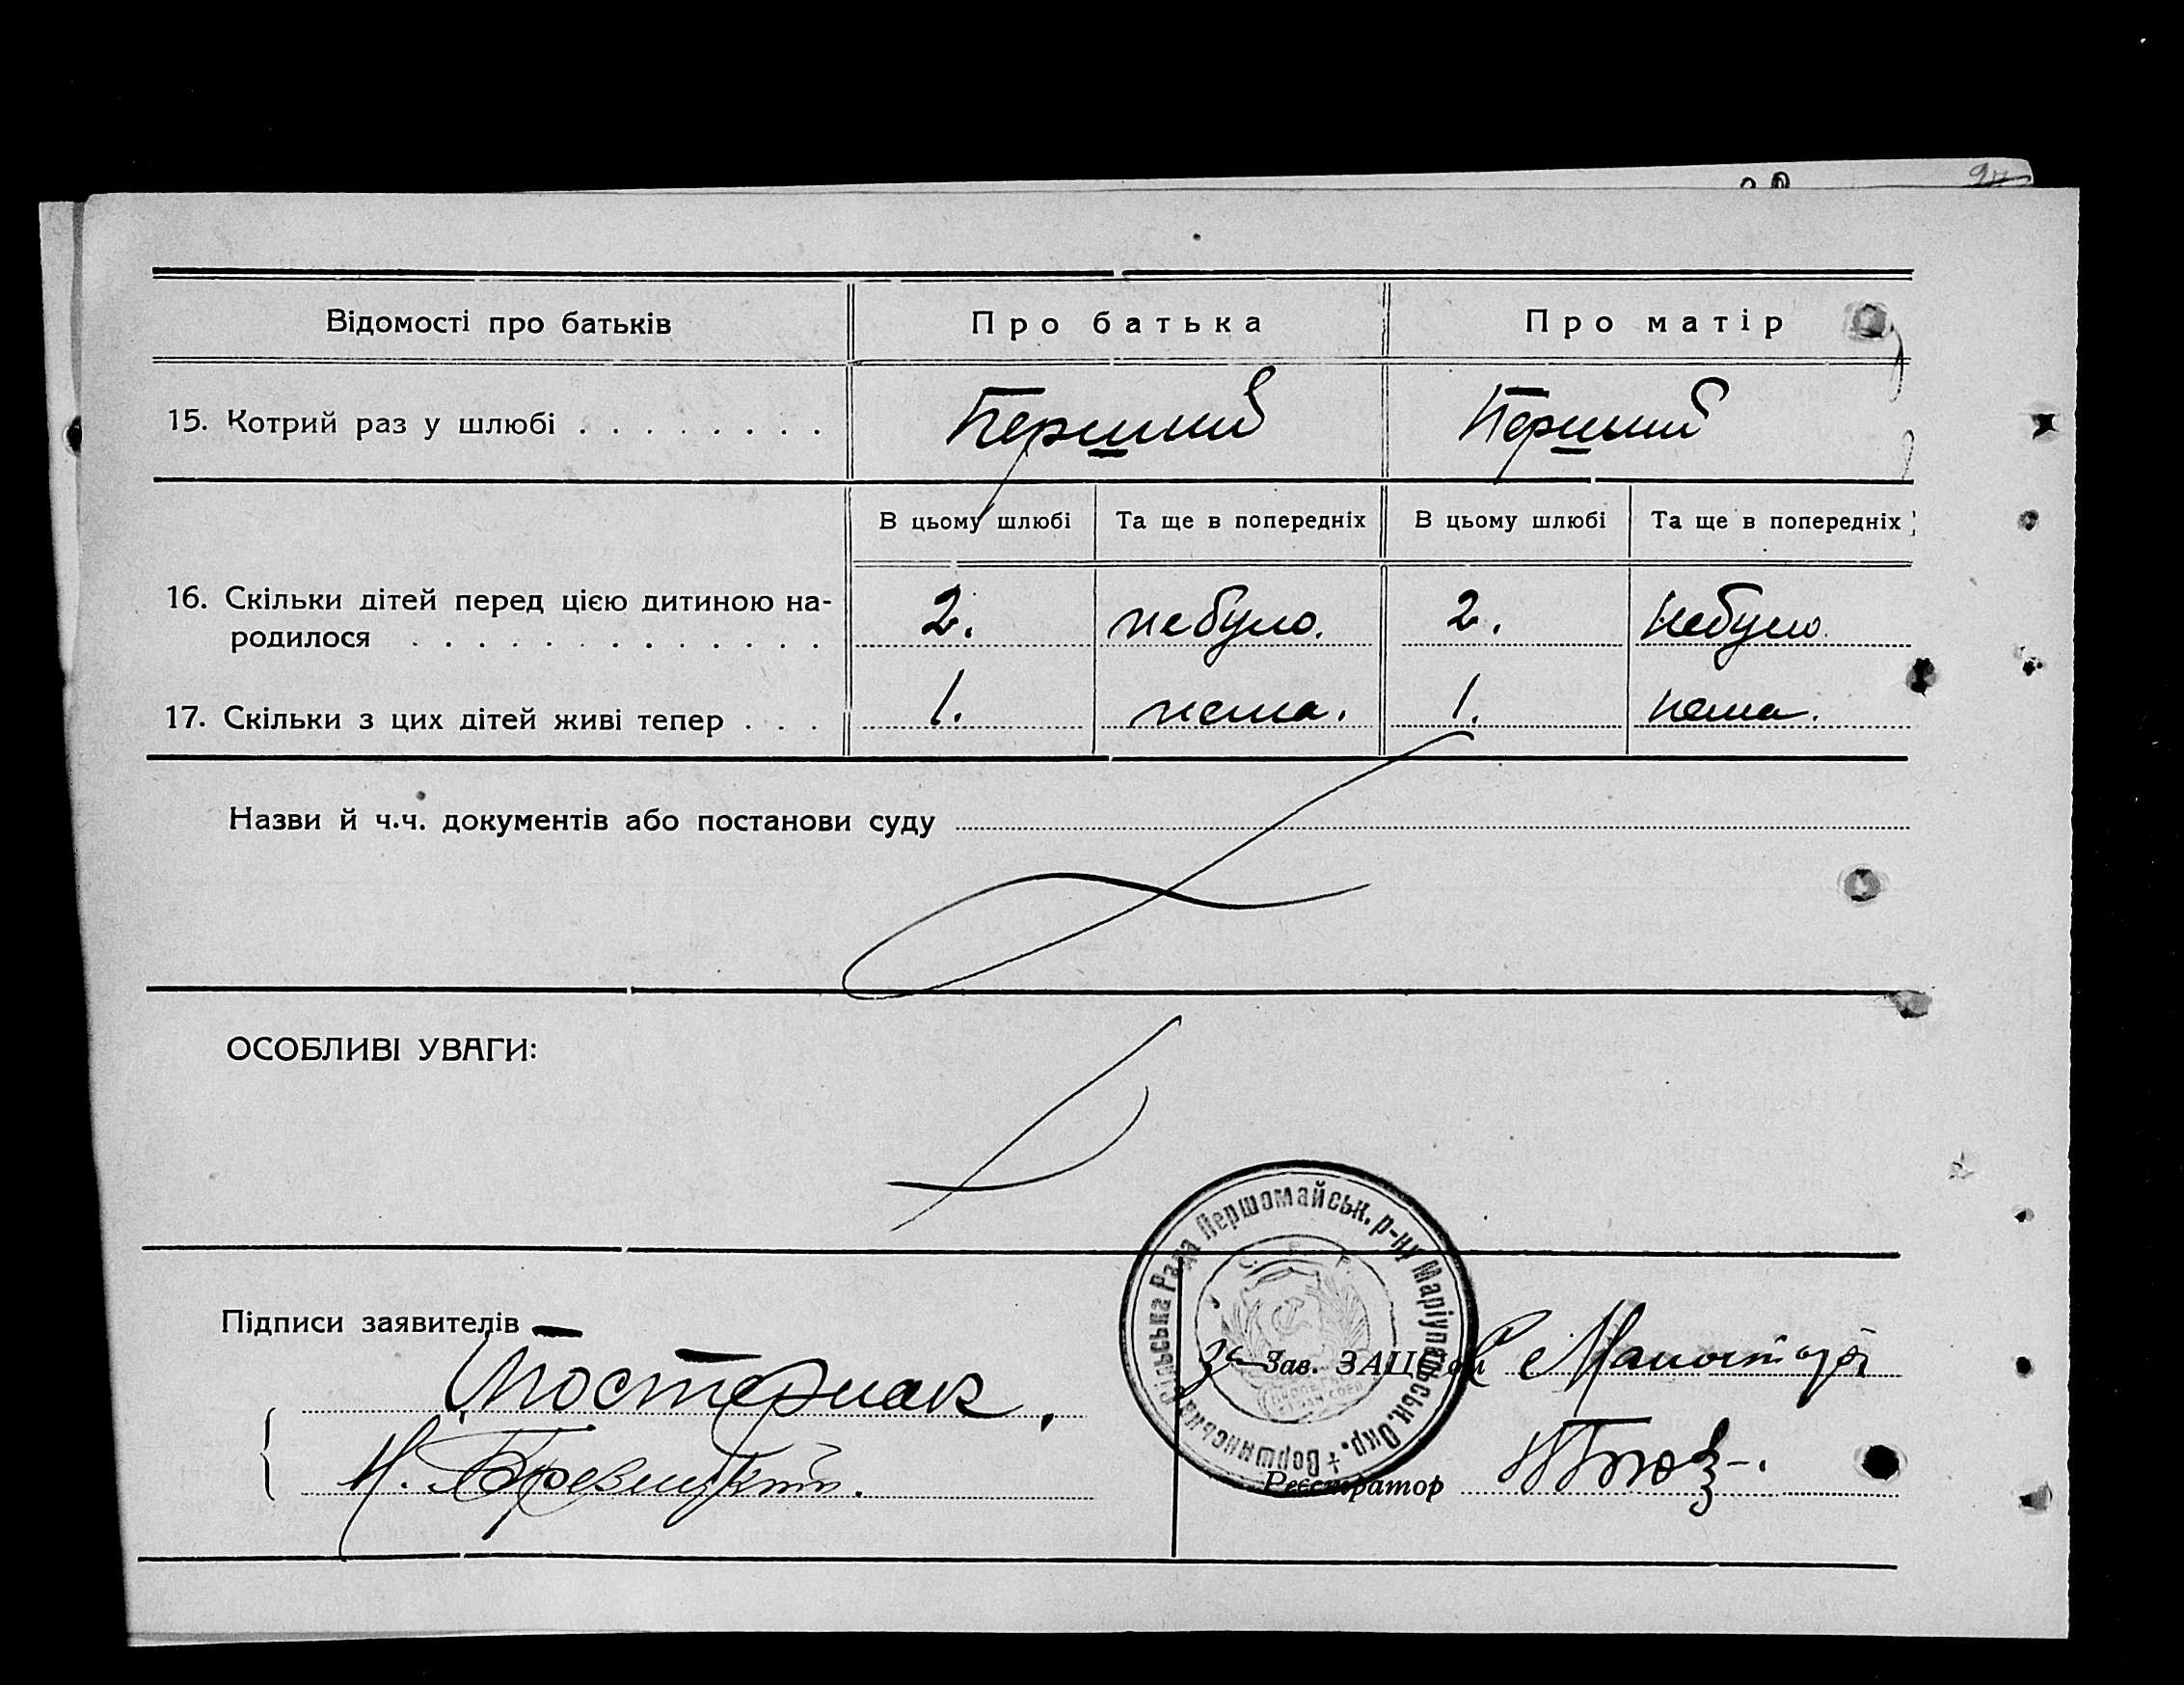 Відомості про батьків Про батька Про матір
15. Котрий раз у шлюбі . . . . . . . . Перший Перший
В цьому шлюбі Та ще в попередніх В цьому шлюбі Та ще в попередніх
16. Скільки дітей перед цією дитиною на-
родилося . . . . . . . . . . . . . 2. небуло. 2. небуло.
17. Скільки з цих дітей живі тепер . . . 1. нема. 1. нема.
Назви й ч.ч. документів або постанови суду
ОСОБЛИВІ УВАГИ:
Сільська Рада Першомайськ. р-ну Маріупільськ. Окр. +
Підписи заявителів
За Зав. ЗАЦСом
Реєстратор